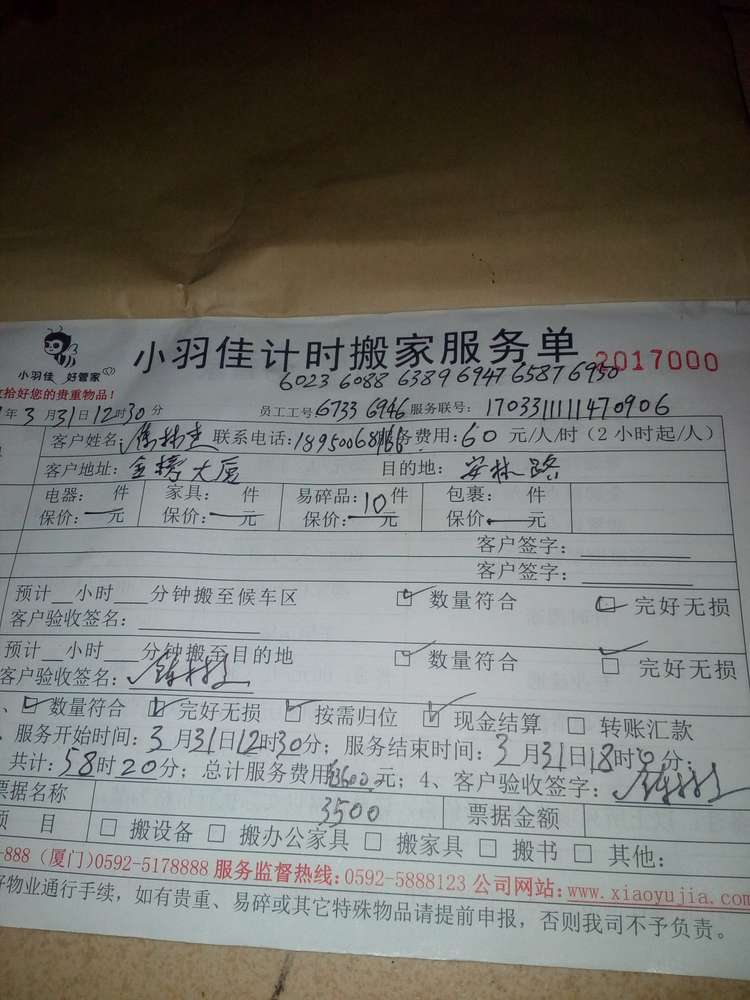 小羽佳计时搬家服务单 2017000
小羽佳 好管家
6023 6088 6389 6947 6587 6950
拾好您的贵重物品!
年3月31日12时30分 员工工号6733 6946 服务联号: 1703311111470906
客户姓名: 联系电话: 服务费用:60元/人/时(2小时起/人)
客户地址:金榜大厦 目的地:安林路
电器: 件 家具: 件 易碎品:10件 包裹: 件
保价:—元 保价:—元 保价:—元 保价:—元
客户签字:
客户签字:
预计 小时 分钟搬至候车区 数量符合 完好无损
客户验收签名:
预计 小时 分钟搬至目的地 数量符合 完好无损
客户验收签名:
、 数量符合 完好无损 按需归位 现金结算 转账汇款
服务开始时间:3月31日12时30分;服务结束时间:3月31日18时 分;
共计:58时20分;总计服务费用 3600元;4、客户验收签字:
票据名称 3500 票据金额
项 目 搬设备 搬办公家具 搬家具 搬书 其他:
-888(厦门)0592-5178888 服务监督热线:0592-5888123 公司网站:www.xiaoyujia.com
好物业通行手续,如有贵重、易碎或其它特殊物品请提前申报,否则我司不予负责。